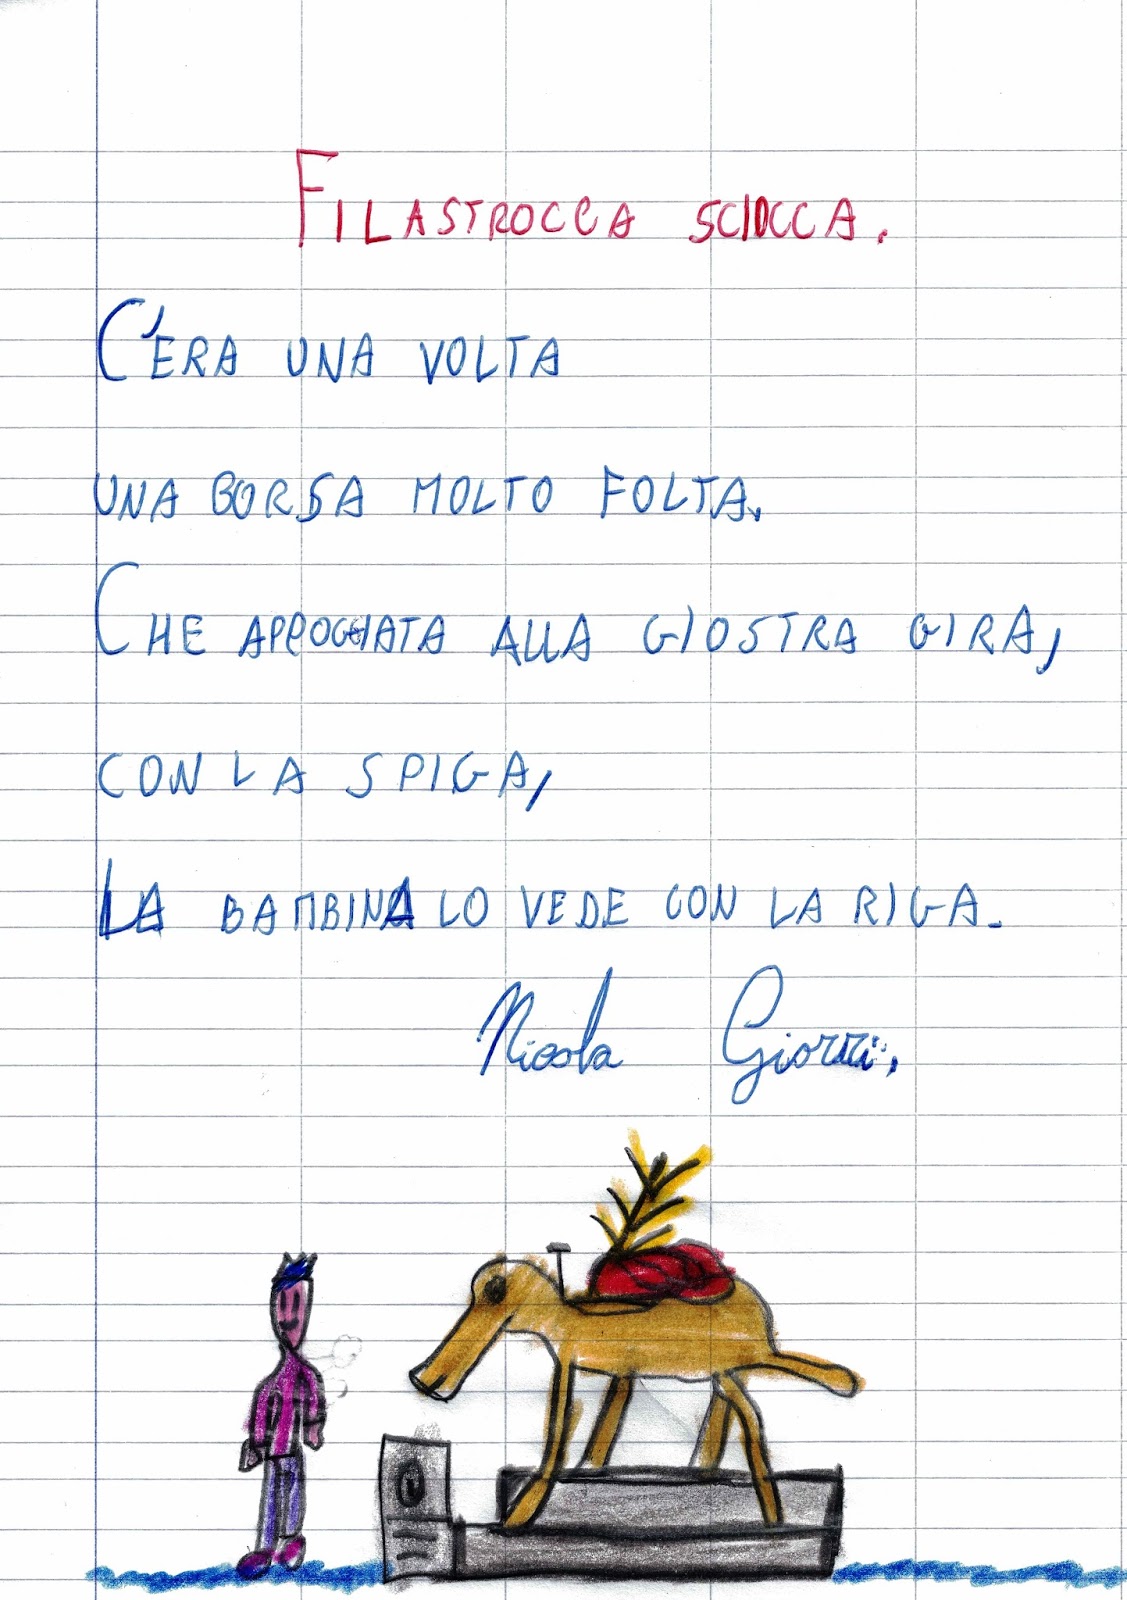 FILASTROCCA SCIOCCA.
C'ERA UNA VOLTA
UNA BORSA MOLTO FOLTA.
CHE APPOGGIATA ALLA GIOSTRA GIRA,
CON LA SPIGA,
LA BAMBINA LO VEDE CON LA RIGA.
Nicola